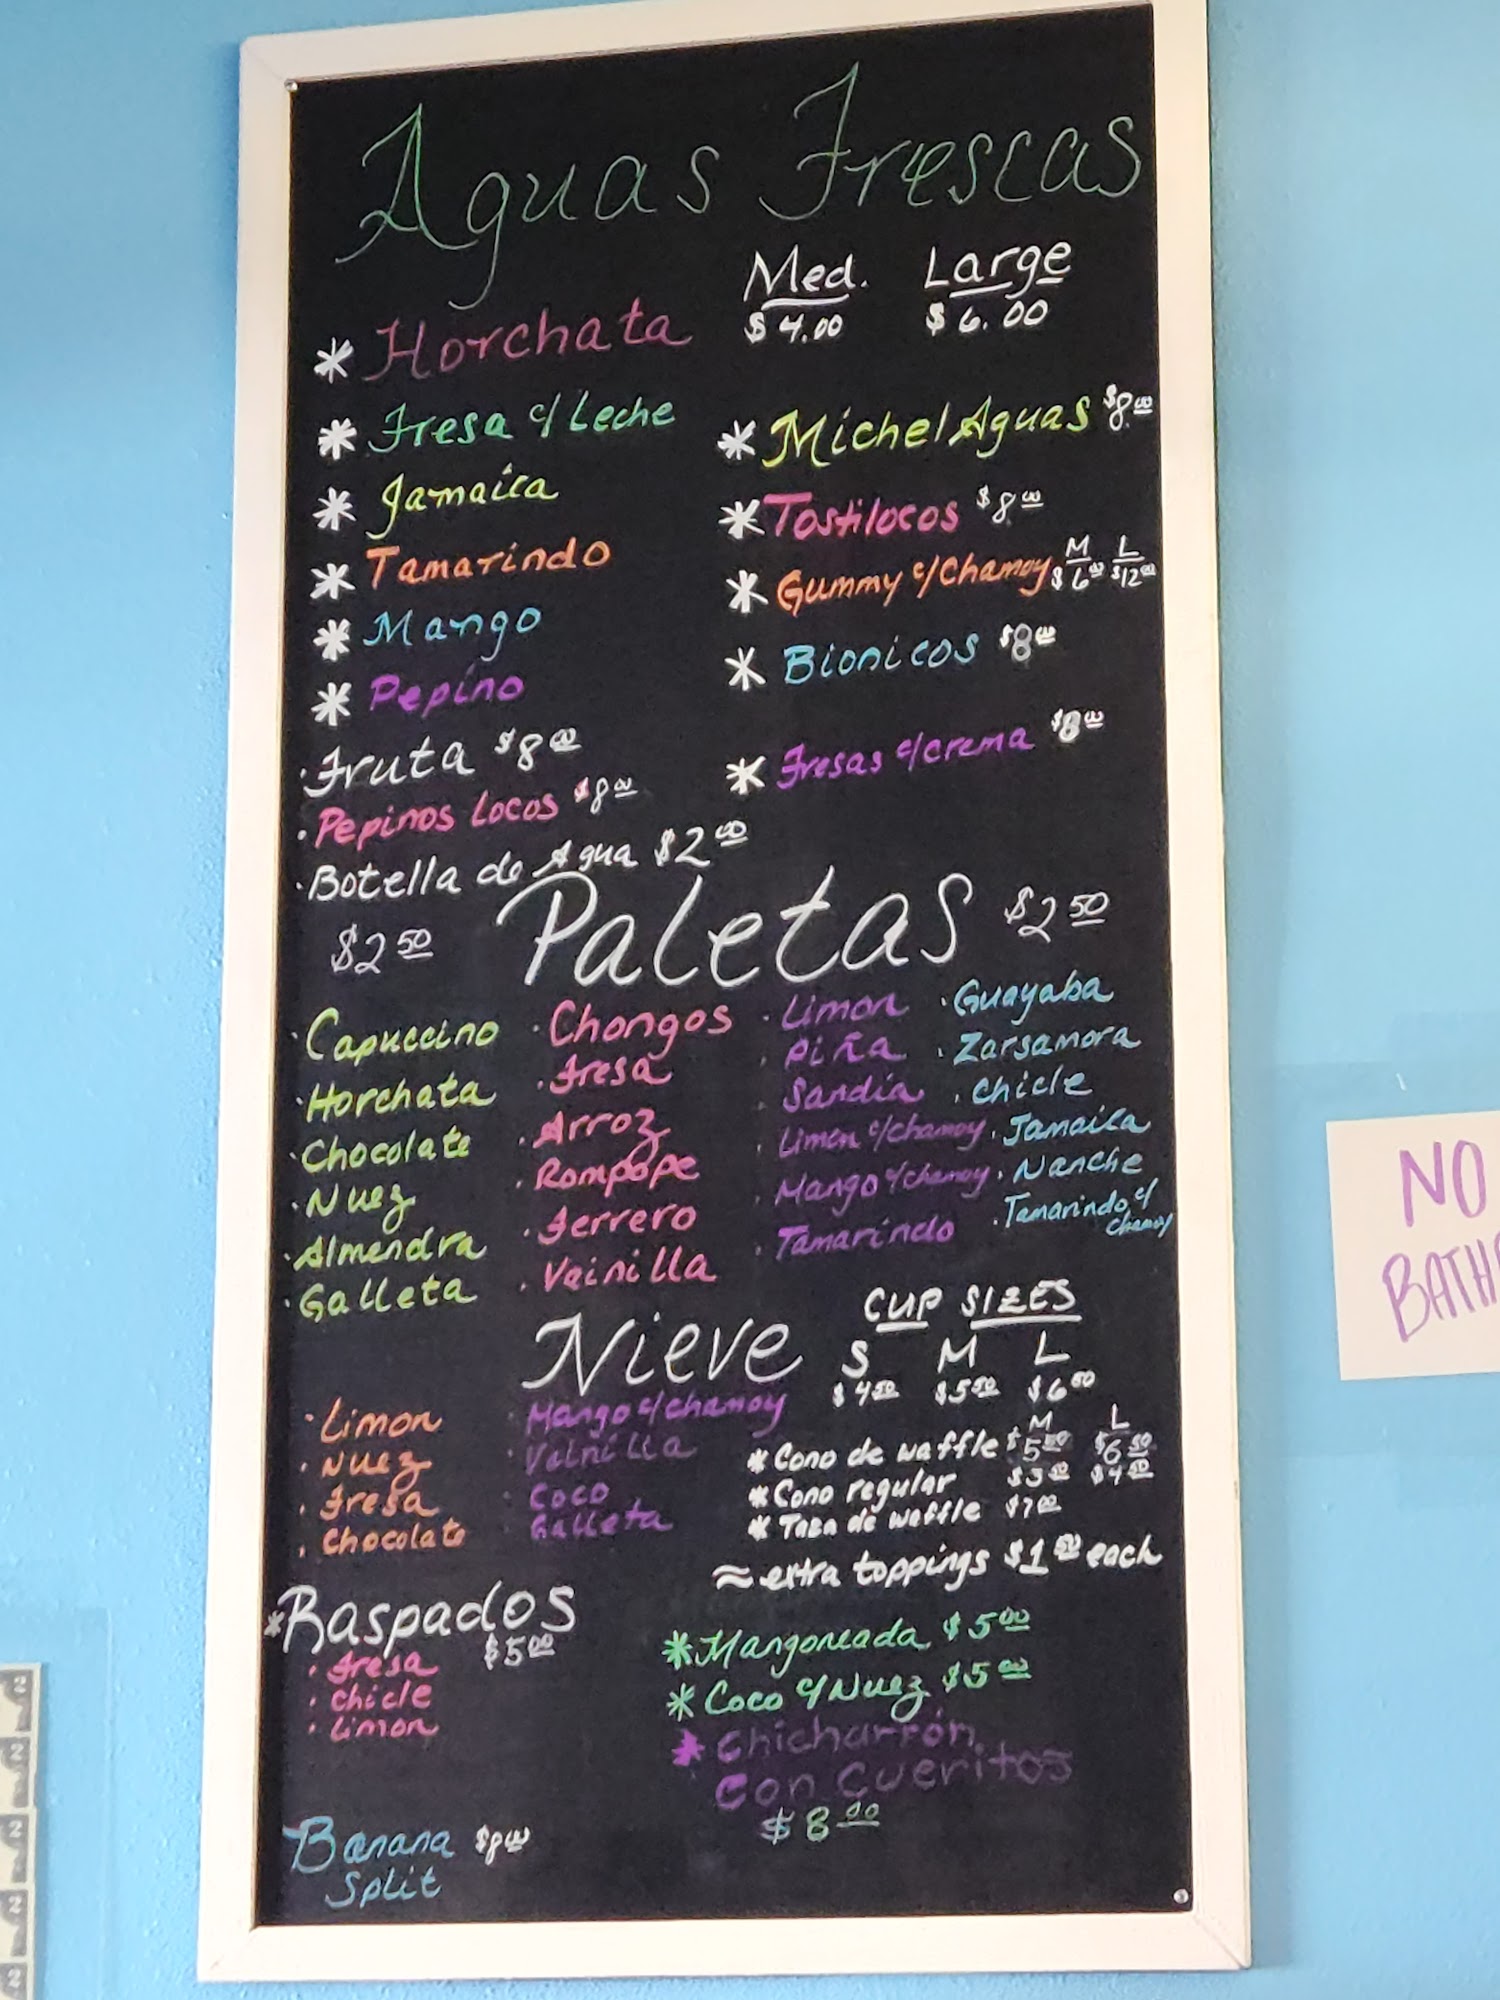 Aguas Frescas
Med. Large
$4.00 $6.00
* Horchata
* Fresa c/Leche
* Jamaica
* Tamarindo
* Mango
* Pepino
· Fruta $8.00
· Pepinos Locos $8.00
· Botella de Agua $2.00
* MichelAguas $8.00
* Tostilocos $8.00
M L
* Gummy c/Chamoy $6.00 $12.00
* Bionicos $8.00
* Fresas c/crema $8.00
$2.50 Paletas $2.50
· Capuccino
· Horchata
· Chocolate
· Nuez
· Almendra
· Galleta
· Chongos
· Fresa
· Arroz
· Rompope
· Ferrero
· Vainilla
· Limon
· Piña
· Sandia
· Limon c/chamoy
· Mango c/chamoy
· Tamarindo
· Guayaba
· Zarsamora
· Chicle
· Jamaica
· Nanche
· Tamarindo c/
chamoy
Nieve
· Limon
· Nuez
· Fresa
· Chocolate
· Mango c/chamoy
· Vainilla
· Coco
· Galleta
CUP SIZES
S M L
$4.50 $5.50 $6.50
M L
* Cono de waffle $5.50 $6.50
* Cono regular $3.50 $4.50
* Taza de waffle $7.00
≈ extra toppings $1.50 each
* Raspados
$5.00
· Fresa
· Chicle
· Limon
* Mangoneada $5.00
* Coco c/Nuez $5.00
* Chicharrón
Con Cueritos
$8.00
Banana $8.00
Split
NO
BATH
2
2
2
2
2